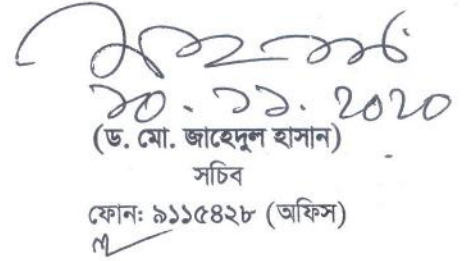 ১০.১১.২০২০
(ড. মো. জাহেদুল হাসান)
সচিব
ফোন: ৯১১৫৪২৮ (অফিস)